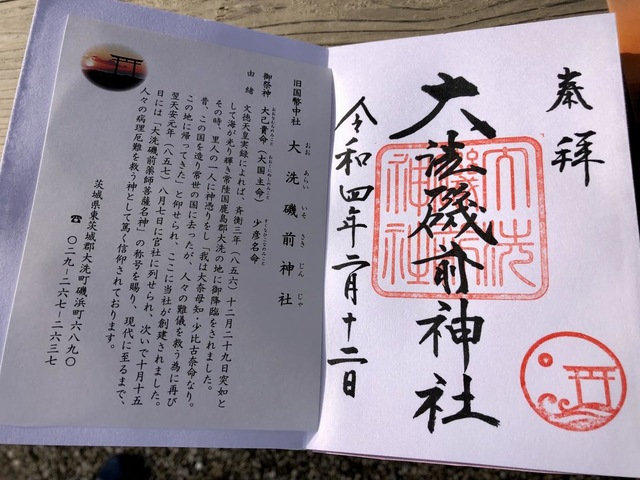 奉拝
大洗磯前神社
大洗
磯前
神社
令和四年二月十二日
旧国幣中社 大洗磯前神社
おお あらい いそ さき じん じゃ
御祭神 大己貴命(大国主命) 少彦名命
おおなむちのみこと おおくにぬしのみこと すくなひこなのみこと
由緒 文徳天皇実録によれば、斉衡三年(八五六)十二月二十九日突如と
して海が光り輝き常陸国鹿島郡大洗の地に御降臨をされました。
その時、里人の一人に神憑りをし「我は大奈母知・少比古奈命なり。
昔、この国を造り常世の国に去ったが、人々の難儀を救う為に再び
この地に帰ってきた」と仰せられ、ここに当社が創建されました。
翌天安元年(八五七)八月七日に官社に列せられ、次いで十月十五
日には「大洗磯前薬師菩薩名神」の称号を賜り、現代に至るまで、
人々の病理厄難を救う神として篤く信仰されております。
茨城県東茨城郡大洗町磯浜町六八九〇
☎ 〇二九-二六七-二六三七